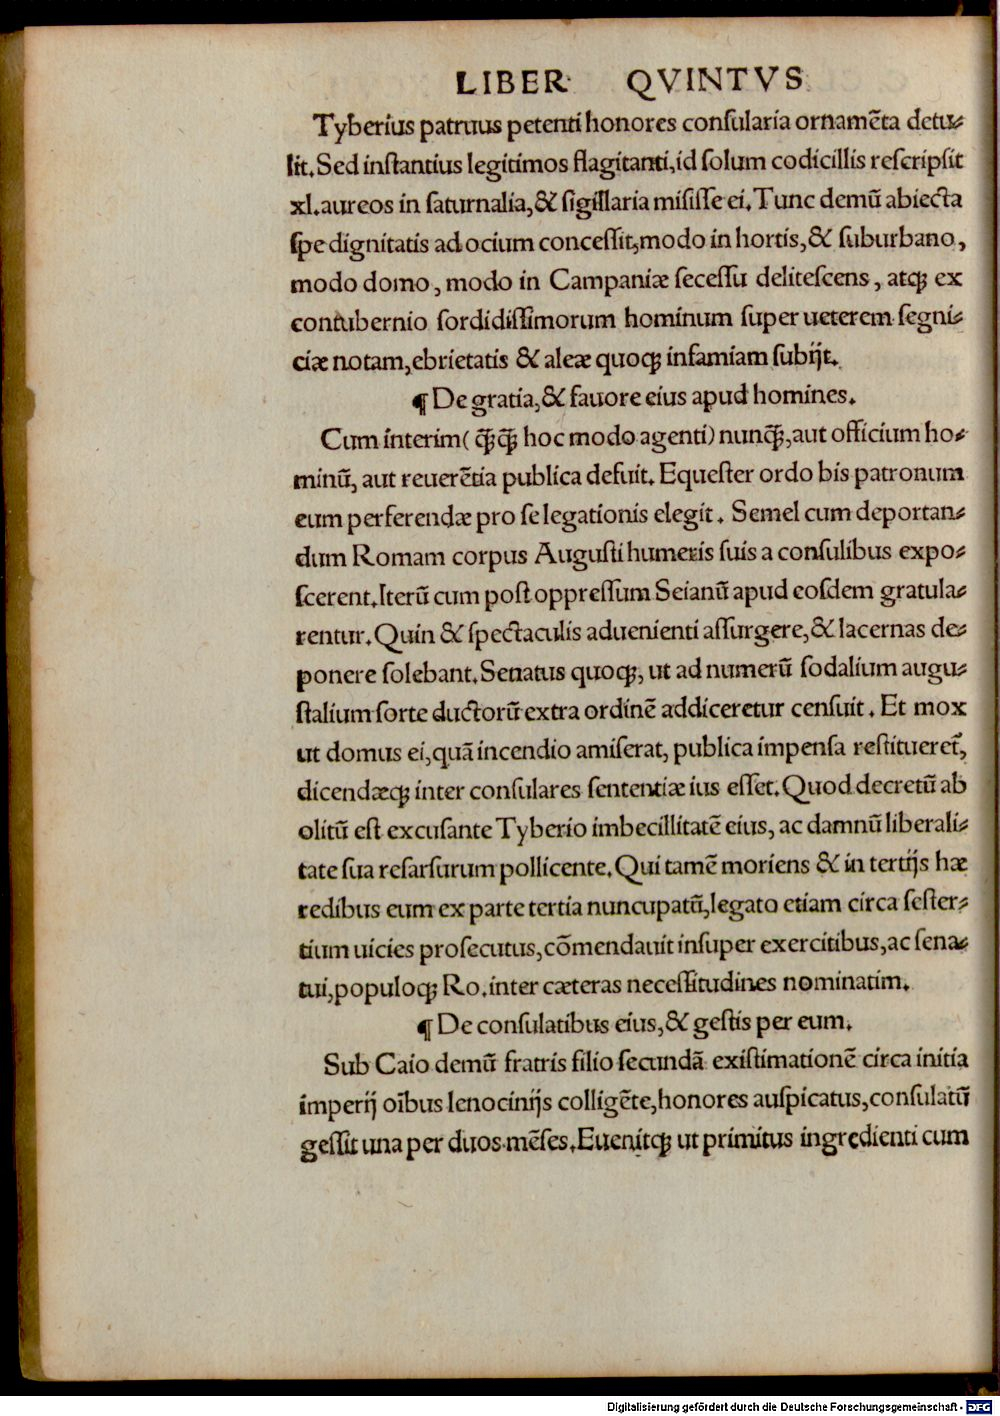 LIBER QVINTVS
Tyberius patruus petenti honores consularia ornamēta detu-
lit. Sed instantius legitimos flagitanti, id solum codicillis rescripsit
xl. aureos in saturnalia, & sigillaria misisse ei. Tunc demū abiecta
spe dignitatis ad ocium concessit, modo in hortis, & suburbano,
modo domo, modo in Campaniæ secessu delitescens, atq; ex
contubernio sordidissimorum hominum super ueterem segni-
ciæ notam, ebrietatis & aleæ quoq; infamiam subijt.
¶ De gratia, & fauore eius apud homines.
Cum interim ( q̄q̄ hoc modo agenti) nunq̄, aut officium ho-
minū, aut reuerētia publica defuit. Equester ordo bis patronum
eum perferendæ pro se legationis elegit. Semel cum deportan-
dum Romam corpus Augusti humeris suis a consulibus expo-
scerent. Iterū cum post oppressum Seianū apud eosdem gratula-
rentur. Quin & spectaculis aduenienti assurgere, & lacernas de-
ponere solebant. Senatus quoq;, ut ad numerū sodalium augu-
stalium sorte ductorū extra ordinē addiceretur censuit. Et mox
ut domus ei, quā incendio amiserat, publica impensa restitueret᷑,
dicendæq; inter consulares sententiæ ius esset. Quod decretū ab
olitū est excusante Tyberio imbecillitatē eius, ac damnū liberali-
tate sua resarsurum pollicente. Qui tamē moriens & in tertijs hæ
redibus eum ex parte tertia nuncupatū, legato etiam circa sester-
tium uicies prosecutus, cōmendauit insuper exercitibus, ac sena-
tui, populoq; Ro. inter cæteras necessitudines nominatim.
¶ De consulatibus eius, & gestis per eum.
Sub Caio demū fratris filio secundā existimationē circa initia
imperij oībus lenocinijs colligēte, honores auspicatus, consulatū
gessit una per duos mēses. Euenitq; ut primitus ingredienti cum
Digitalisierung gefördert durch die Deutsche Forschungsgemeinschaft - DFG